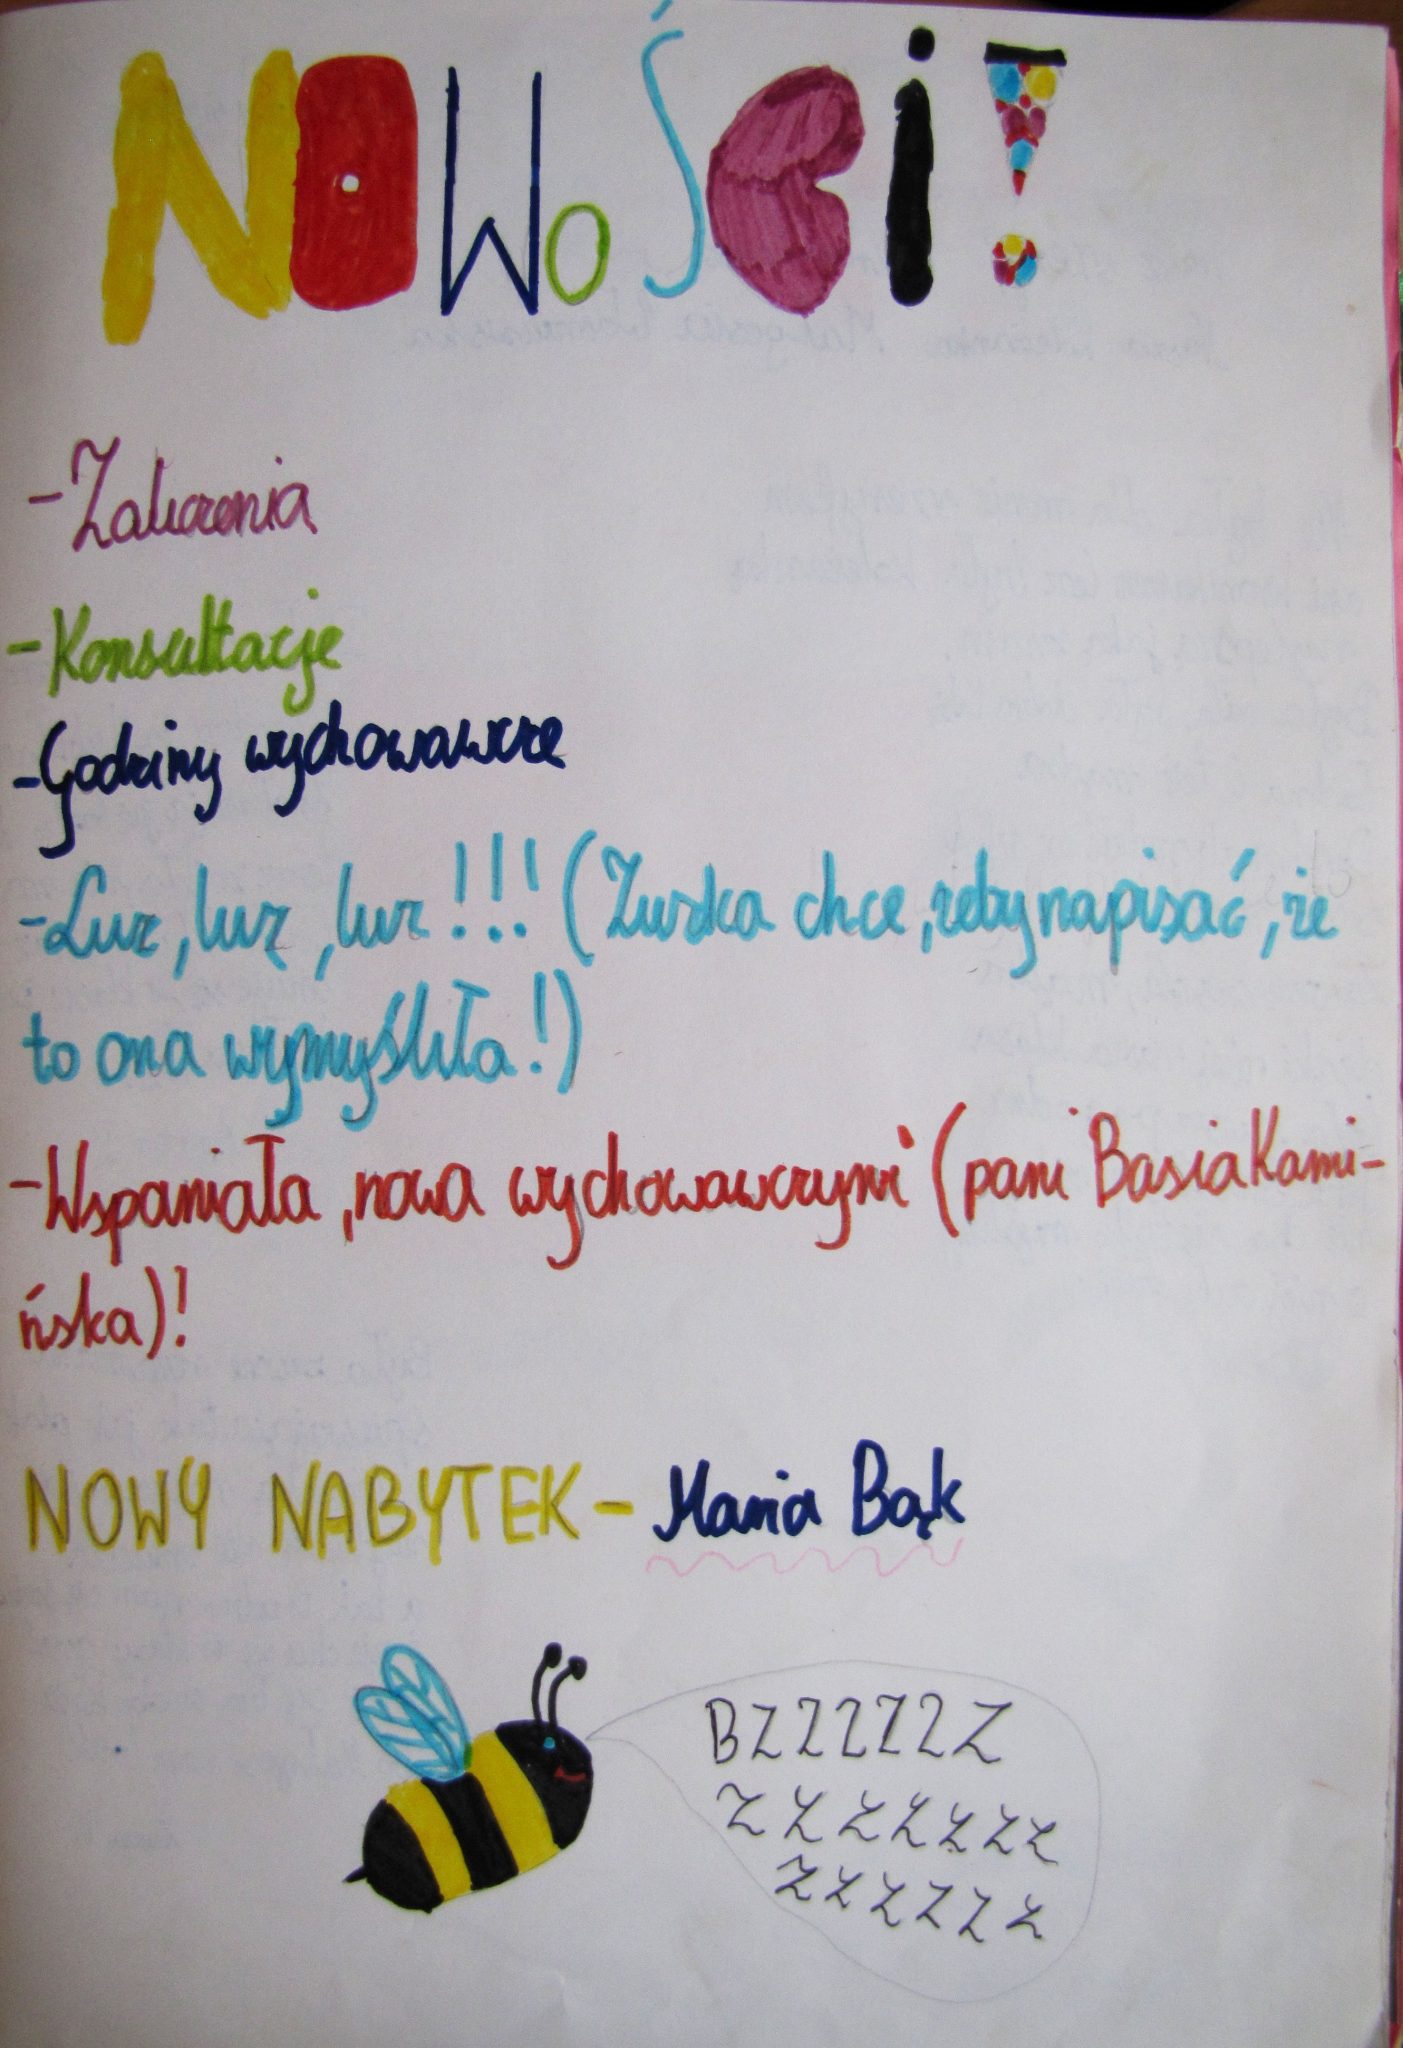 NOWOŚCi!
-Zaliczenia
-Konsultacje
-Godziny wychowawcze
-Luz, luz, luz!!! (Zuzka chce, żeby napisać, że
to ona wymyśliła!)
-Wspaniała, nowa wychowawczyni (pani Basia Kami-
ńska)!
NOWY NABYTEK- Mania Bąk
BZZZZZZ
ZZZZZZZ
ZZZZZZ